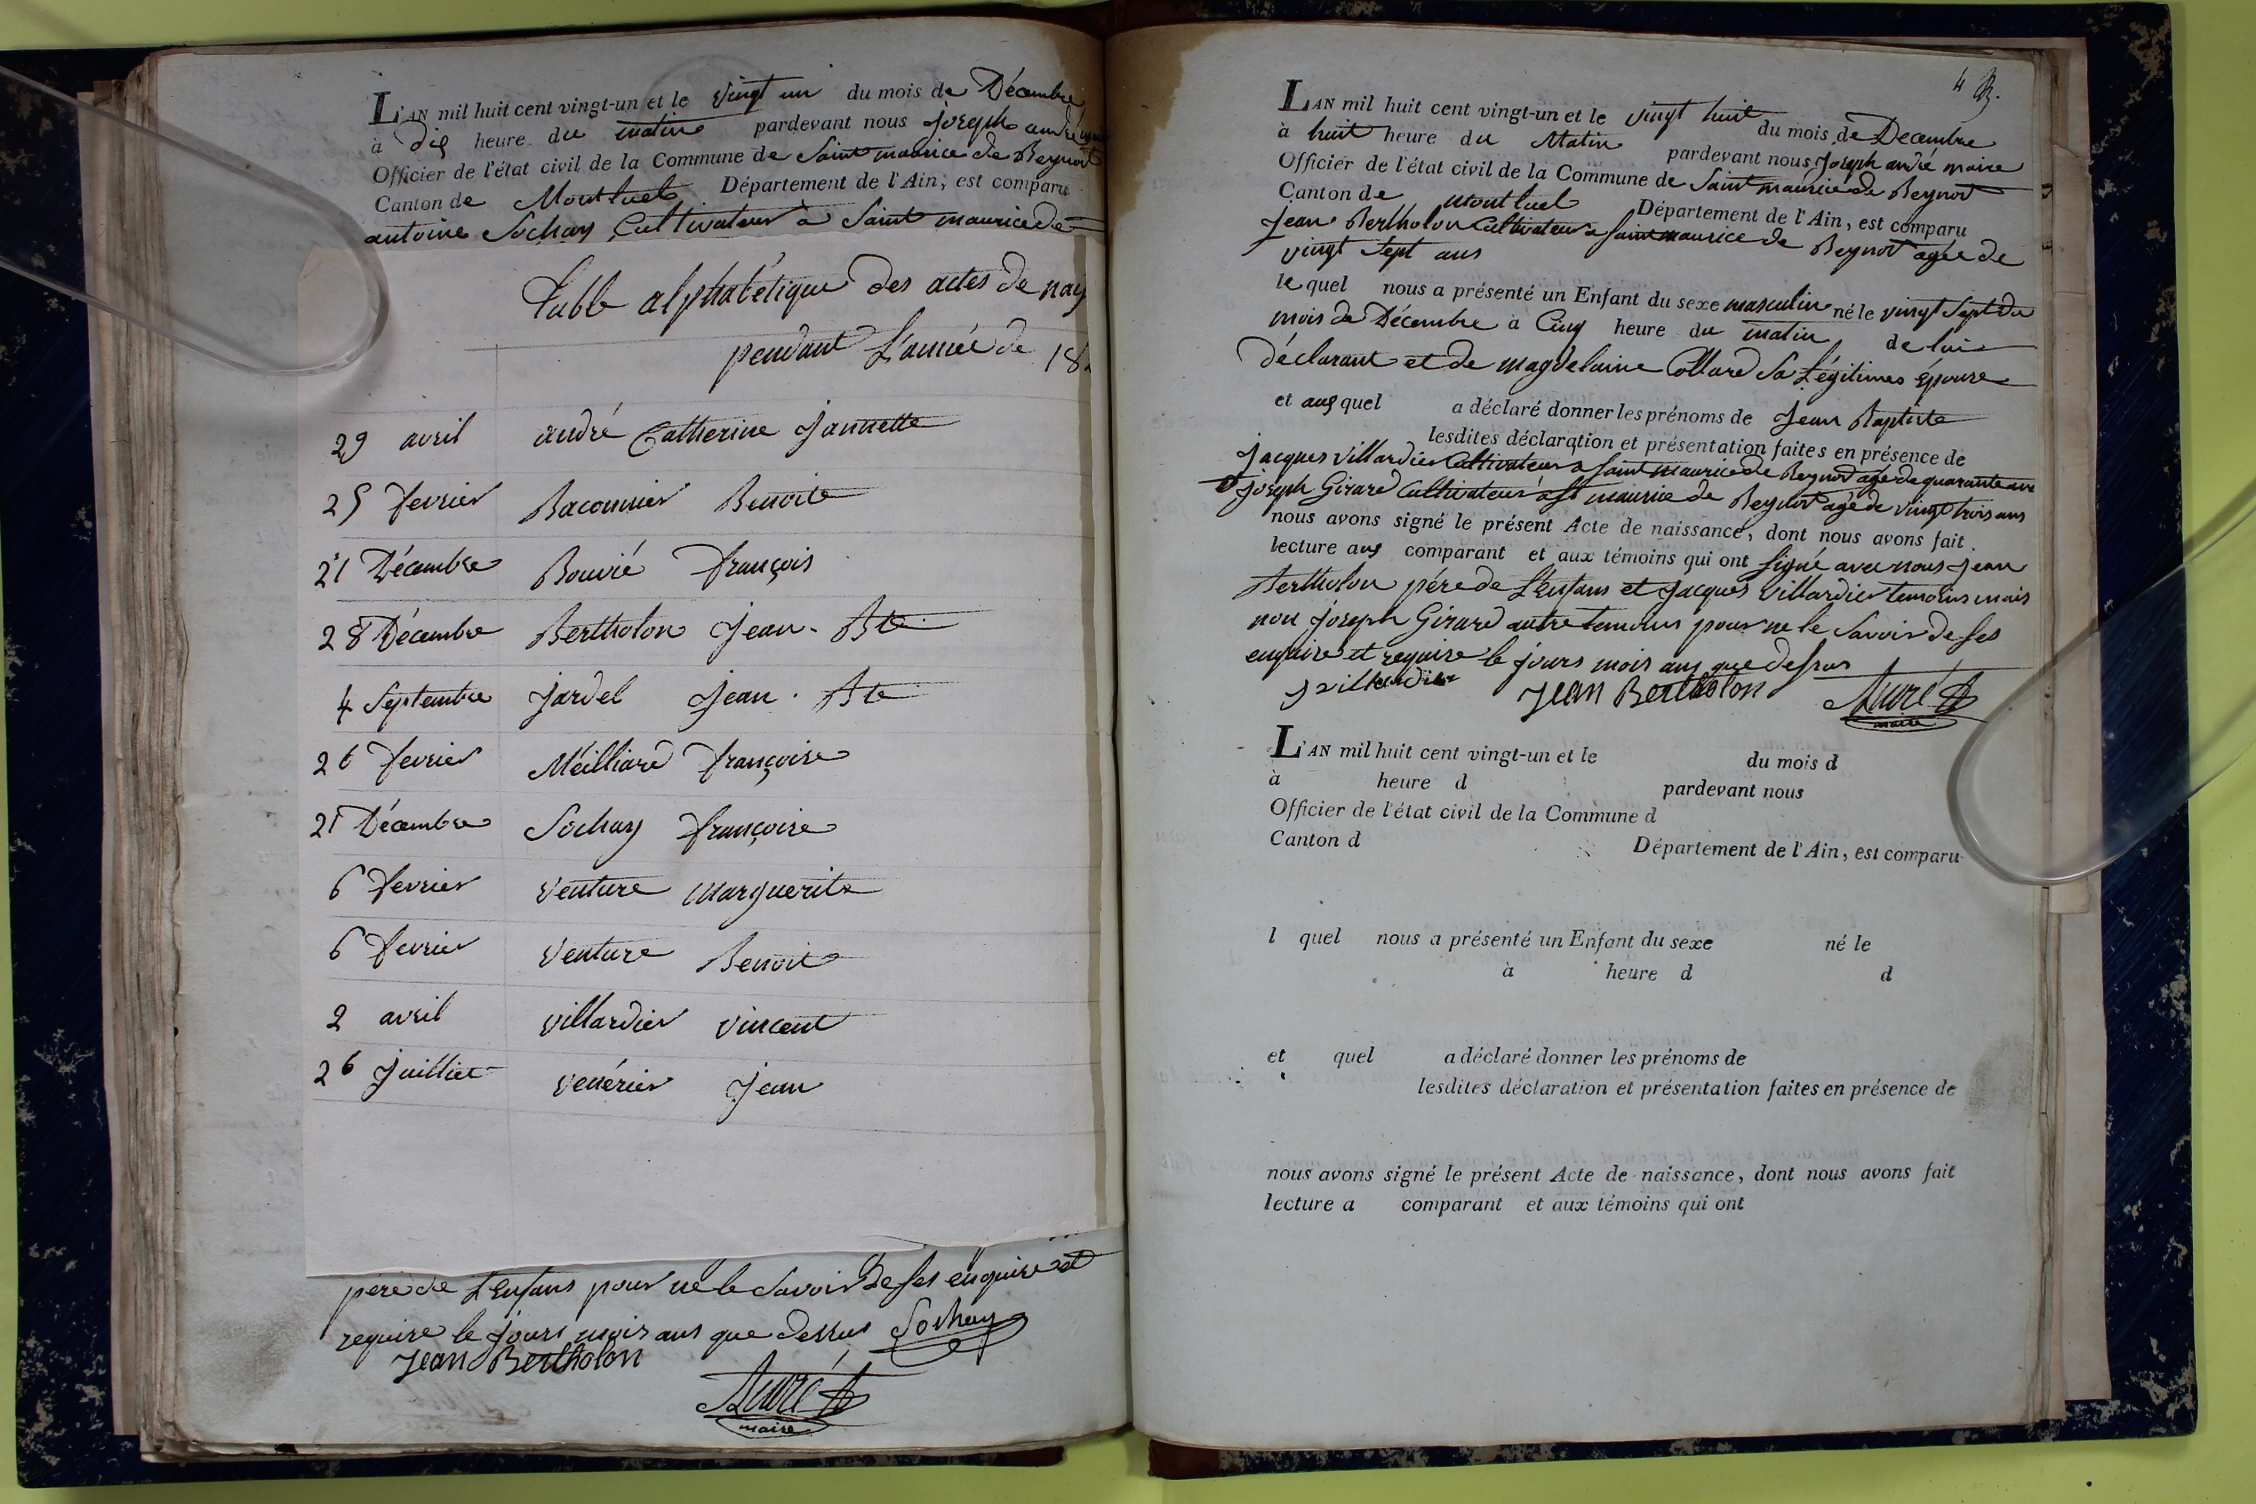 L'AN mil huit cent vingt-un et le vingt un du mois de Décembre
à dix heure du matin pardevant nous joseph andré
Officier de l'état civil de la Commune de Saint maurice de Beynost
Canton de Montluel Département de l'Ain, est comparu
antoine Sochay Cultivateur à Saint maurice de
Table alphabétique des actes de nais
pendant L'année de 18
29 avril andré Catherine Jannette
25 fevrier Baconnier Benoite
21 Décembre Bouvié françois
28 Décembre Bertholon Jean-Bte
4 Septembre Jardel Jean-Bte
26 fevrier Meilliard françoise
21 Décembre Sochay françoise
6 fevrier Venture Marguerite
6 fevrier Venture Benoit
2 avril Villardier Vincent
26 Juilliet Venérier Jean
pere de L'Enfans pour ne le Savoir De ses enquise et
requise le jours mois ans que dessus Sochay
Jean Bertholon
André
maire
4
L'AN mil huit cent vingt-un et le vingt huit du mois de Decembre
à huit heure du Matin pardevant nous Joseph andré maire
Officier de l'état civil de la Commune de Saint maurice de Beynost
Canton de montluel Département de l'Ain, est comparu
Jean Bertholon Cultivateur a Saint maurice de Beynost agée de
vingt Sept ans
le quel nous a présenté un Enfant du sexe masculin né le vingt Sept du
mois de Décembre à Cinq heure du matin de lui
déclarant et de magdelaine Collard Sa Légitimes épouse
et auquel a déclaré donner les prénoms de Jean Baptiste
lesdites déclaration et présentation faites en présence de
Jacques Villardier Cultivateur a Saint maurice de Beynost agé de quarante ans
joseph Girard Cultivateur a St maurice de Beynost agé de vingt trois ans
nous avons signé le présent Acte de naissance, dont nous avons fait
lecture aux comparant et aux témoins qui ont signé avec nous Jean
Bertholon pére de L'Enfans et Jacques Villardier temoins mais
non joseph Girard autre temoins pour ne le Savoir de ses
enquise et requise le jours mois ans que dessus
J villardier Jean Bertholon André
maire
L'AN mil huit cent vingt-un et le du mois d
à heure d pardevant nous
Officier de l'état civil de la Commune d
Canton d Département de l'Ain, est comparu
l quel nous a présenté un Enfant du sexe né le
à heure d d
et quel a déclaré donner les prénoms de
lesdites déclaration et présentation faites en présence de
nous avons signé le présent Acte de naissance, dont nous avons fait
lecture a comparant et aux témoins qui ont